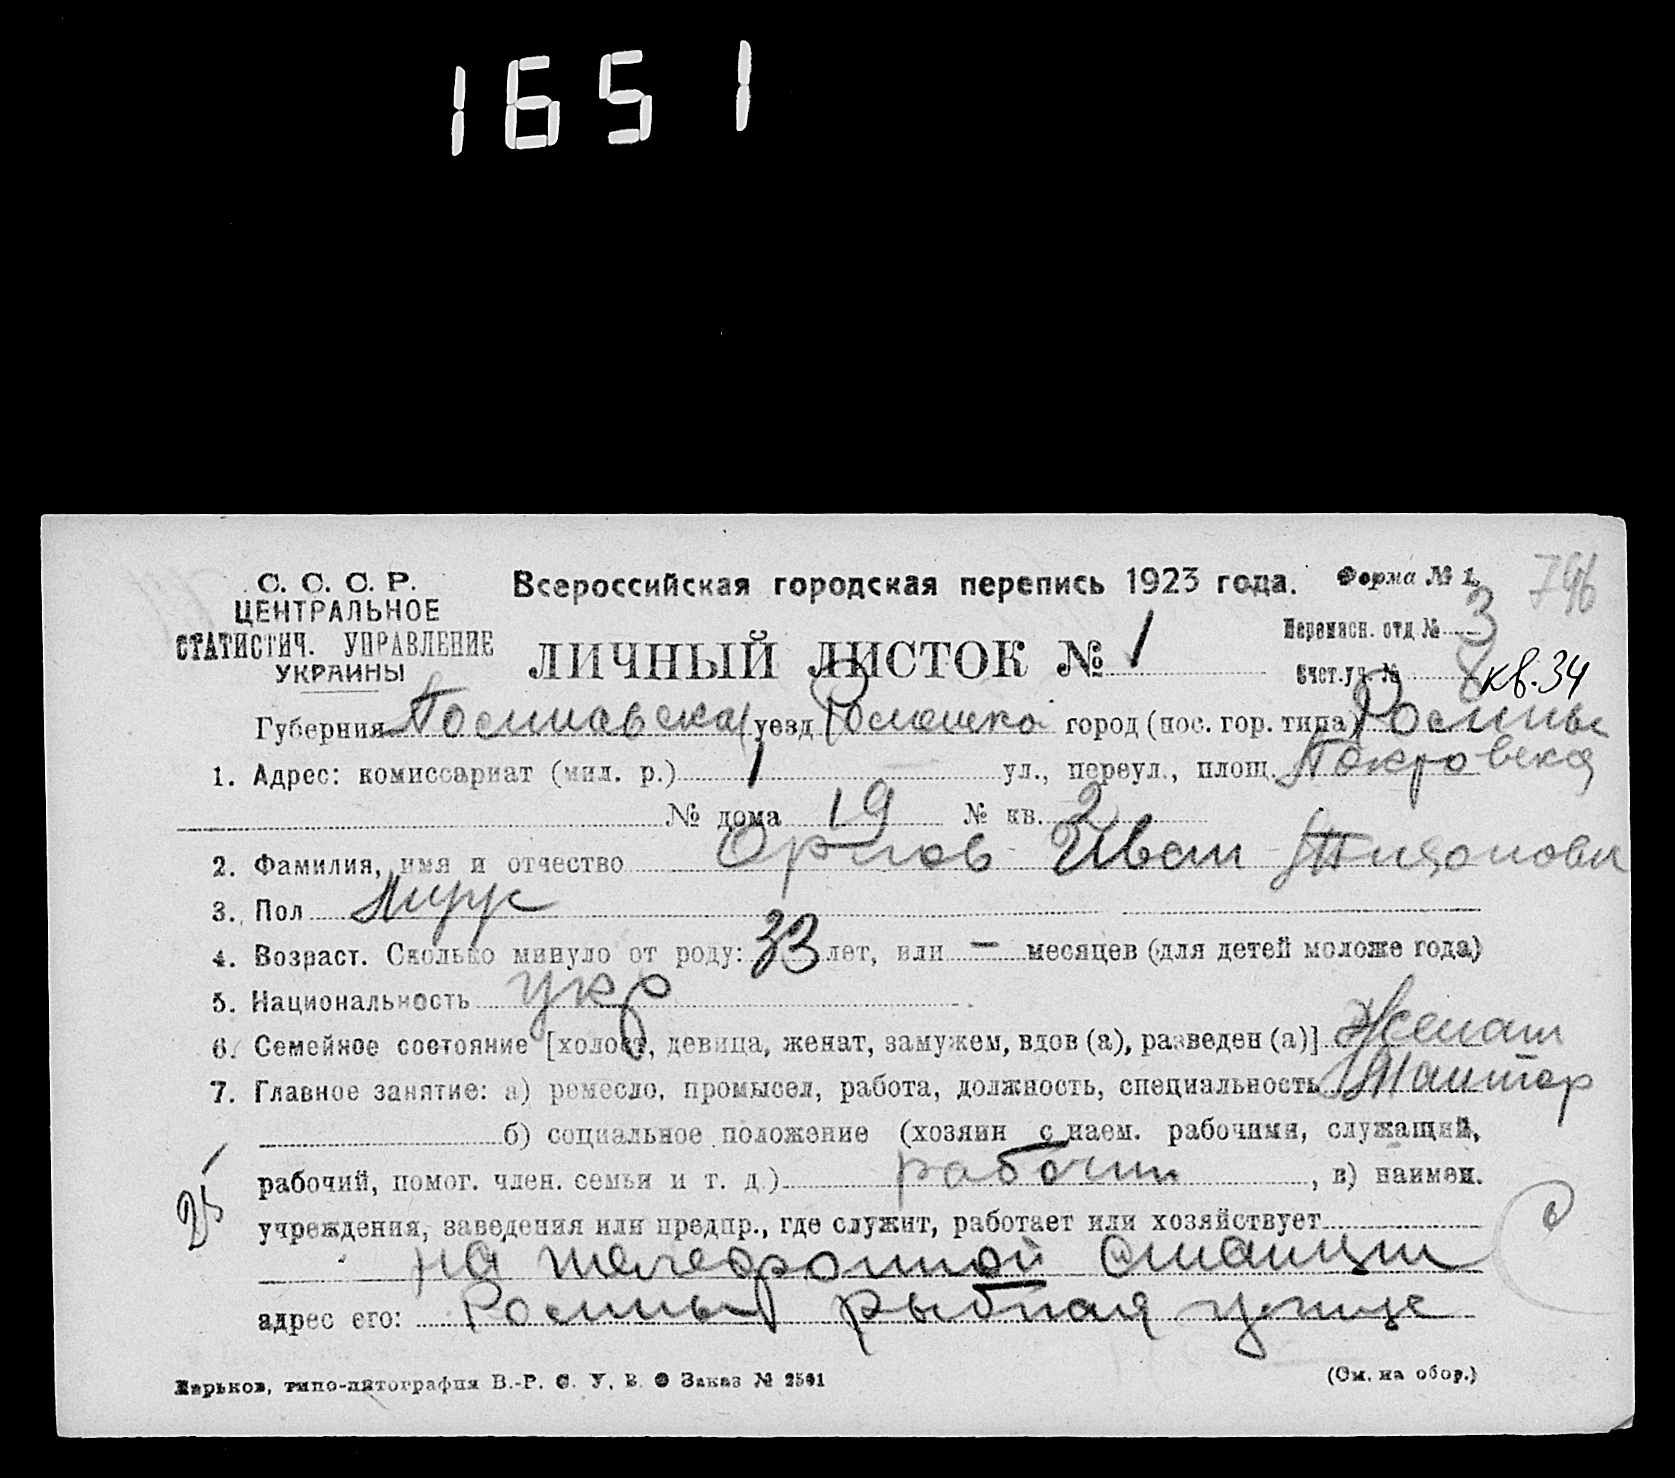 1651
С. С. С. Р.
ЦЕНТРАЛЬНОЕ
СТАТИСТИЧ. УПРАВЛЕНИЕ
УКРАИНЫ
Всероссийская городская перепись 1923 года.
Форма № 1.
ЛИЧНЫЙ ЛИСТОК № 1
отд № 3
Счст.уч. № 8 кв. 34
Губерния уезд город (пос. гор. типа) Ромны
1. Адрес: комиссариат (мил. р.) 1 ул., переул., площ. Покровска
№ дома 19 № кв. 2
2. Фамилия, имя и отчество Орлов Иван
3. Пол Муж
4. Возраст. Сколько минуло от роду: 33 лет, или — месяцев (для детей моложе года)
5. Национальность укр
6. Семейное состояние [холост, девица, женат, замужем, вдов (а), разведен (а)] Женат
7. Главное занятие: а) ремесло, промысел, работа, должность, специальность Монтер
б) социальное положение (хозяин с наем. рабочими, служащий,
рабочий, помог. член. семьи и т. д.) рабочий, в) наимен.
учреждения, заведения или предпр., где служит, работает или хозяйствует
на телефонной станции
адрес его: Ромны рыбная улице
Харьков, типо-литография В.-Р. С. У. В. О Заказ № 2561
(См. на обор.)